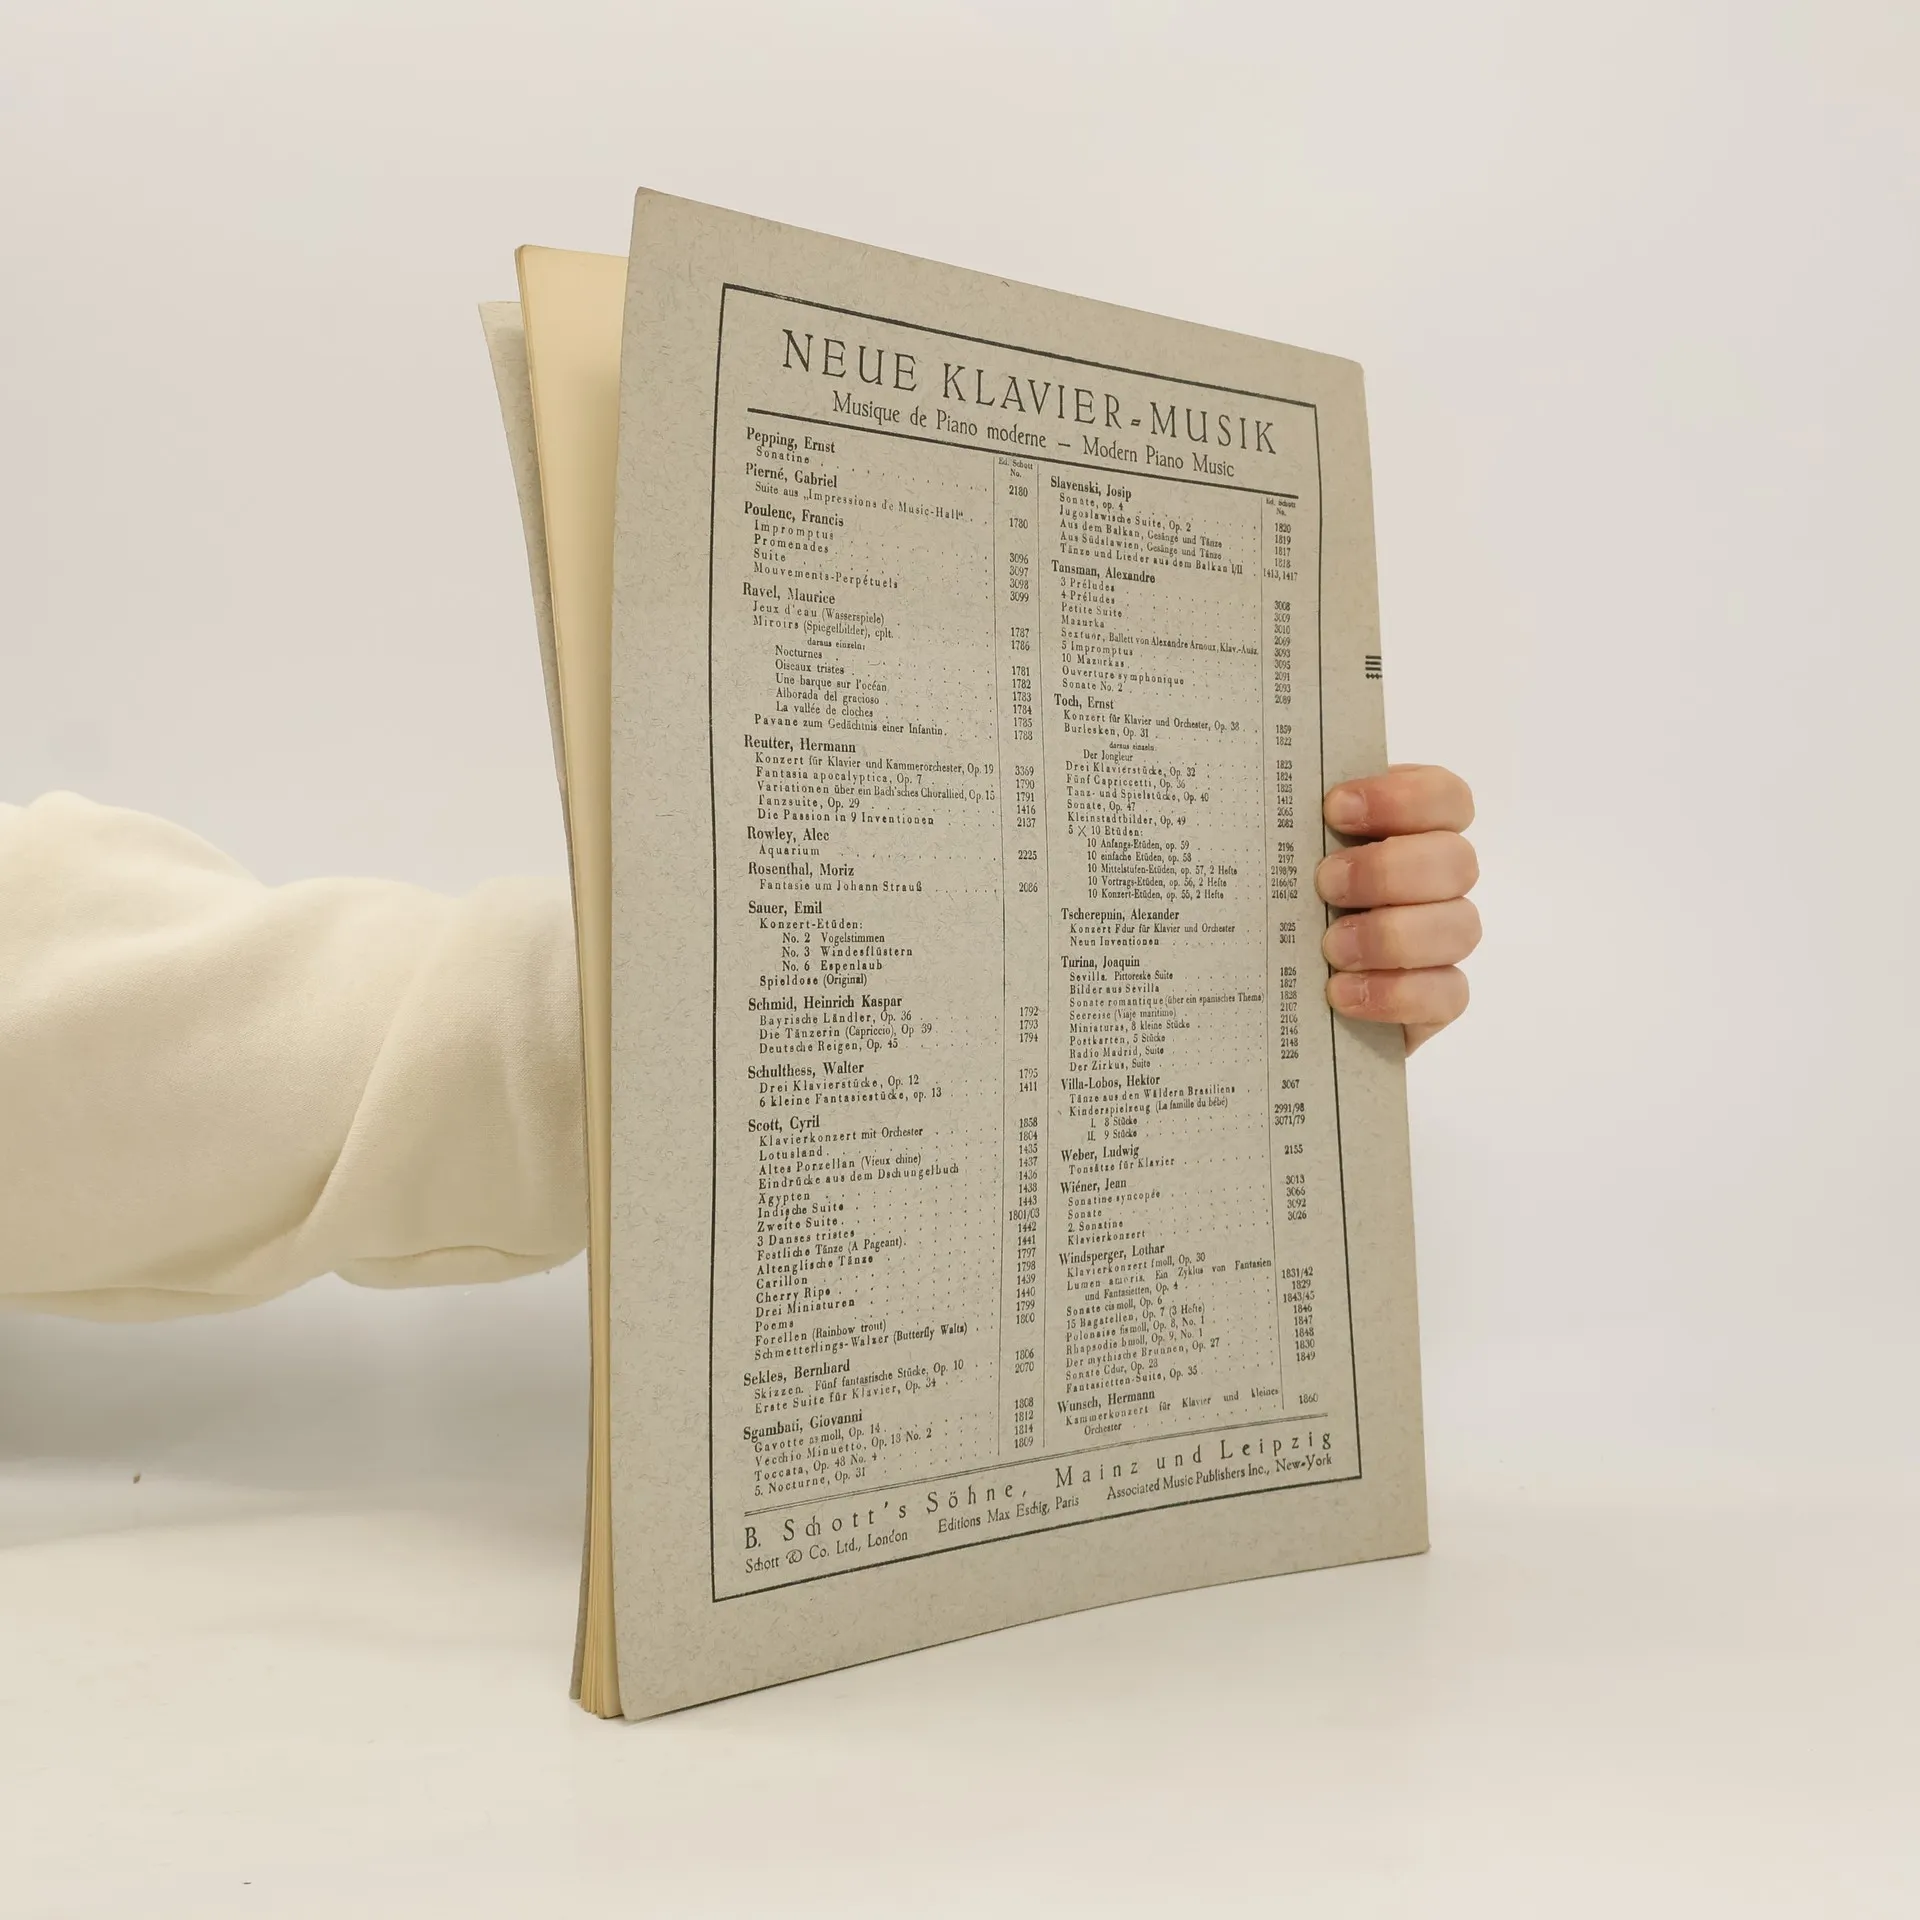 NEUE KLAVIER-MUSIK
Musique de Piano moderne — Modern Piano Music
Ed. Schott
No.
Pepping, Ernst
Sonatine . . . 2180
Pierné, Gabriel
Suite aus „Impressions de Music-Hall“ . . 1780
Poulenc, Francis
Impromptus . . . 3096
Promenades . . . 3097
Suite . . . 3098
Mouvements-Perpétuels . . . 3099
Ravel, Maurice
Jeux d'eau (Wasserspiele) . . . 1787
Miroirs (Spiegelbilder), cplt. . . . 1786
daraus einzeln:
Nocturnes . . . 1781
Oiseaux tristes . . . 1782
Une barque sur l'océan . . . 1783
Alborada del gracioso . . . 1784
La vallée de cloches . . . 1785
Pavane zum Gedächtnis einer Infantin. . . . 1788
Reutter, Hermann
Konzert für Klavier und Kammerorchester, Op. 19 3369
Fantasia apocalyptica, Op. 7 . . . 1790
Variationen über ein Bach'sches Chorallied, Op. 15 1791
Tanzsuite, Op. 29 . . . 1416
Die Passion in 9 Inventionen . . . 2137
Rowley, Alec
Aquarium . . . 2225
Rosenthal, Moriz
Fantasie um Johann Strauß . . . 2086
Sauer, Emil
Konzert-Etüden:
No. 2 Vogelstimmen
No. 3 Windesflüstern
No. 6 Espenlaub
Spieldose (Original)
Schmid, Heinrich Kaspar
Bayrische Ländler, Op. 36 . . . 1792
Die Tänzerin (Capriccio), Op 39 . . . 1793
Deutsche Reigen, Op. 45 . . . 1794
Schulthess, Walter
Drei Klavierstücke, Op. 12 . . . 1795
6 kleine Fantasiestücke, op. 13 . . . 1411
Scott, Cyril
Klavierkonzert mit Orchester . . . 1858
Lotusland . . . 1804
Altes Porzellan (Vieux chine) . . . 1435
Eindrücke aus dem Dschungelbuch . . . 1437
Ägypten . . . 1436
Indische Suite . . . 1438
Zweite Suite . . . 1443
3 Danses tristes . . . 1801/03
Festliche Tänze (A Pageant). . . . 1442
Altenglische Tänze . . . 1441
Carillon . . . 1797
Cherry Ripe . . . 1798
Drei Miniaturen . . . 1439
Poems . . . 1440
Forellen (Rainbow trout) . . . 1799
Schmetterlings-Walzer (Butterfly Waltz) . . 1800
Sekles, Bernhard
Skizzen. Fünf fantastische Stücke, Op. 10 . . 1806
Erste Suite für Klavier, Op. 34 . . . 2070
Sgambati, Giovanni
Gavotte asmoll, Op. 14 . . . 1808
Vecchio Minuetto, Op. 18 No. 2 . . . 1812
Toccata, Op. 48 No. 4 . . . 1814
5. Nocturne, Op. 31 . . . 1809
Ed. Schott
No.
Slavenski, Josip
Sonate, op. 4 . . . 1820
Jugoslawische Suite, Op. 2 . . . 1819
Aus dem Balkan, Gesänge und Tänze . . . 1817
Aus Südslawien, Gesänge und Tänze . . . 1818
Tänze und Lieder aus dem Balkan I/II . 1413,1417
Tansman, Alexandre
3 Préludes . . . 3008
4 Préludes . . . 3009
Petite Suite . . . 3010
Mazurka . . . 2069
Sextuor, Ballett von Alexandre Arnoux, Klav.-Ausz. 3093
5 Impromptus . . . 3095
10 Mazurkas . . . 2091
Ouverture symphonique . . . 2093
Sonate No. 2 . . . 2089
Toch, Ernst
Konzert für Klavier und Orchester, Op. 38 . . 1859
Burlesken, Op. 31 . . . 1822
daraus einzeln:
Der Jongleur . . . 1823
Drei Klavierstücke, Op. 32 . . . 1824
Fünf Capriccetti, Op. 36 . . . 1825
Tanz- und Spielstücke, Op. 40 . . . 1412
Sonate, Op. 47 . . . 2065
Kleinstadtbilder, Op. 49 . . . 2082
5 X 10 Etüden:
10 Anfangs-Etüden, op. 59 . . . 2196
10 einfache Etüden, op. 58 . . . 2197
10 Mittelstufen-Etüden, op. 57, 2 Hefte . . 2198/99
10 Vortrags-Etüden, op. 56, 2 Hefte . . 2166/67
10 Konzert-Etüden, op. 55, 2 Hefte . . 2161/62
Tscherepnin, Alexander
Konzert Fdur für Klavier und Orchester . . 3025
Neun Inventionen . . . 3011
Turina, Joaquin
Sevilla. Pittoreske Suite . . . 1826
Bilder aus Sevilla . . . 1827
Sonate romantique (über ein spanisches Thema) 1828
Seereise (Viaje maritimo) . . . 2107
Miniaturas, 8 kleine Stücke . . . 2106
Postkarten, 5 Stücke . . . 2146
Radio Madrid, Suite . . . 2148
Der Zirkus, Suite . . . 2226
Villa-Lobos, Hektor
Tänze aus den Wäldern Brasiliens . . 3067
Kinderspielzeug (La famille du bébé)
I. 8 Stücke . . . 2991/98
II. 9 Stücke . . . 3071/79
Weber, Ludwig
Tonsätze für Klavier . . . 2155
Wiéner, Jean
Sonatine syncopée . . . 3013
Sonate . . . 3066
2. Sonatine . . . 3092
Klavierkonzert . . . 3026
Windsperger, Lothar
Klavierkonzert fmoll, Op. 30
Lumen amoris. Ein Zyklus von Fantasien
und Fantasietten, Op. 4 . . . 1831/42
Sonate cis moll, Op. 6 . . . 1829
15 Bagatellen, Op. 7 (3 Hefte) . . . 1843/45
Polonaise fismoll, Op. 8, No. 1 . . . 1846
Rhapsodie bmoll, Op. 9, No. 1 . . . 1847
Der mythische Brunnen, Op. 27 . . . 1848
Sonate Cdur, Op. 28 . . . 1830
Fantasietten-Suite, Op. 35 . . . 1849
Wunsch, Hermann
Kammerkonzert für Klavier und kleines
Orchester . . . 1860
B. Schott's Söhne, Mainz und Leipzig
Schott & Co. Ltd., London Editions Max Eschig, Paris Associated Music Publishers Inc., New-York